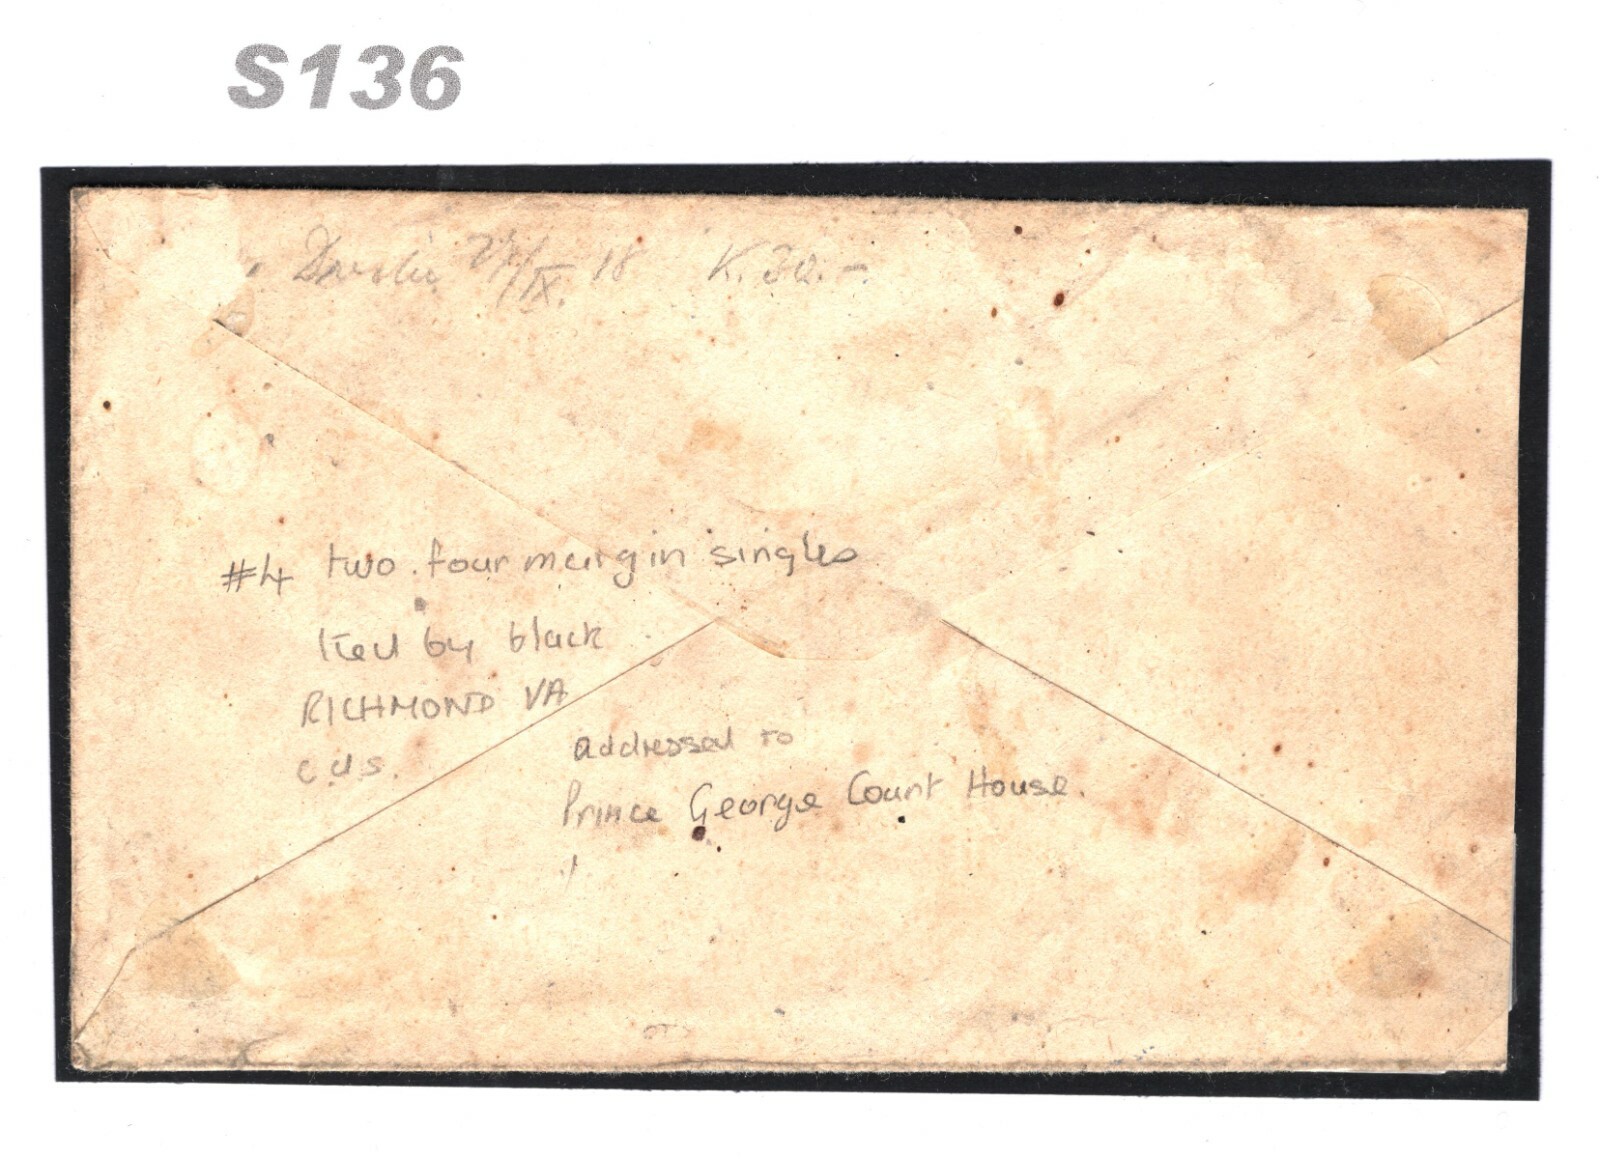 S136
27/IX. 18 K. 30.-
#4 two four margin singles
tied by black
RICHMOND VA
cds.
addressed to
Prince George Court House.